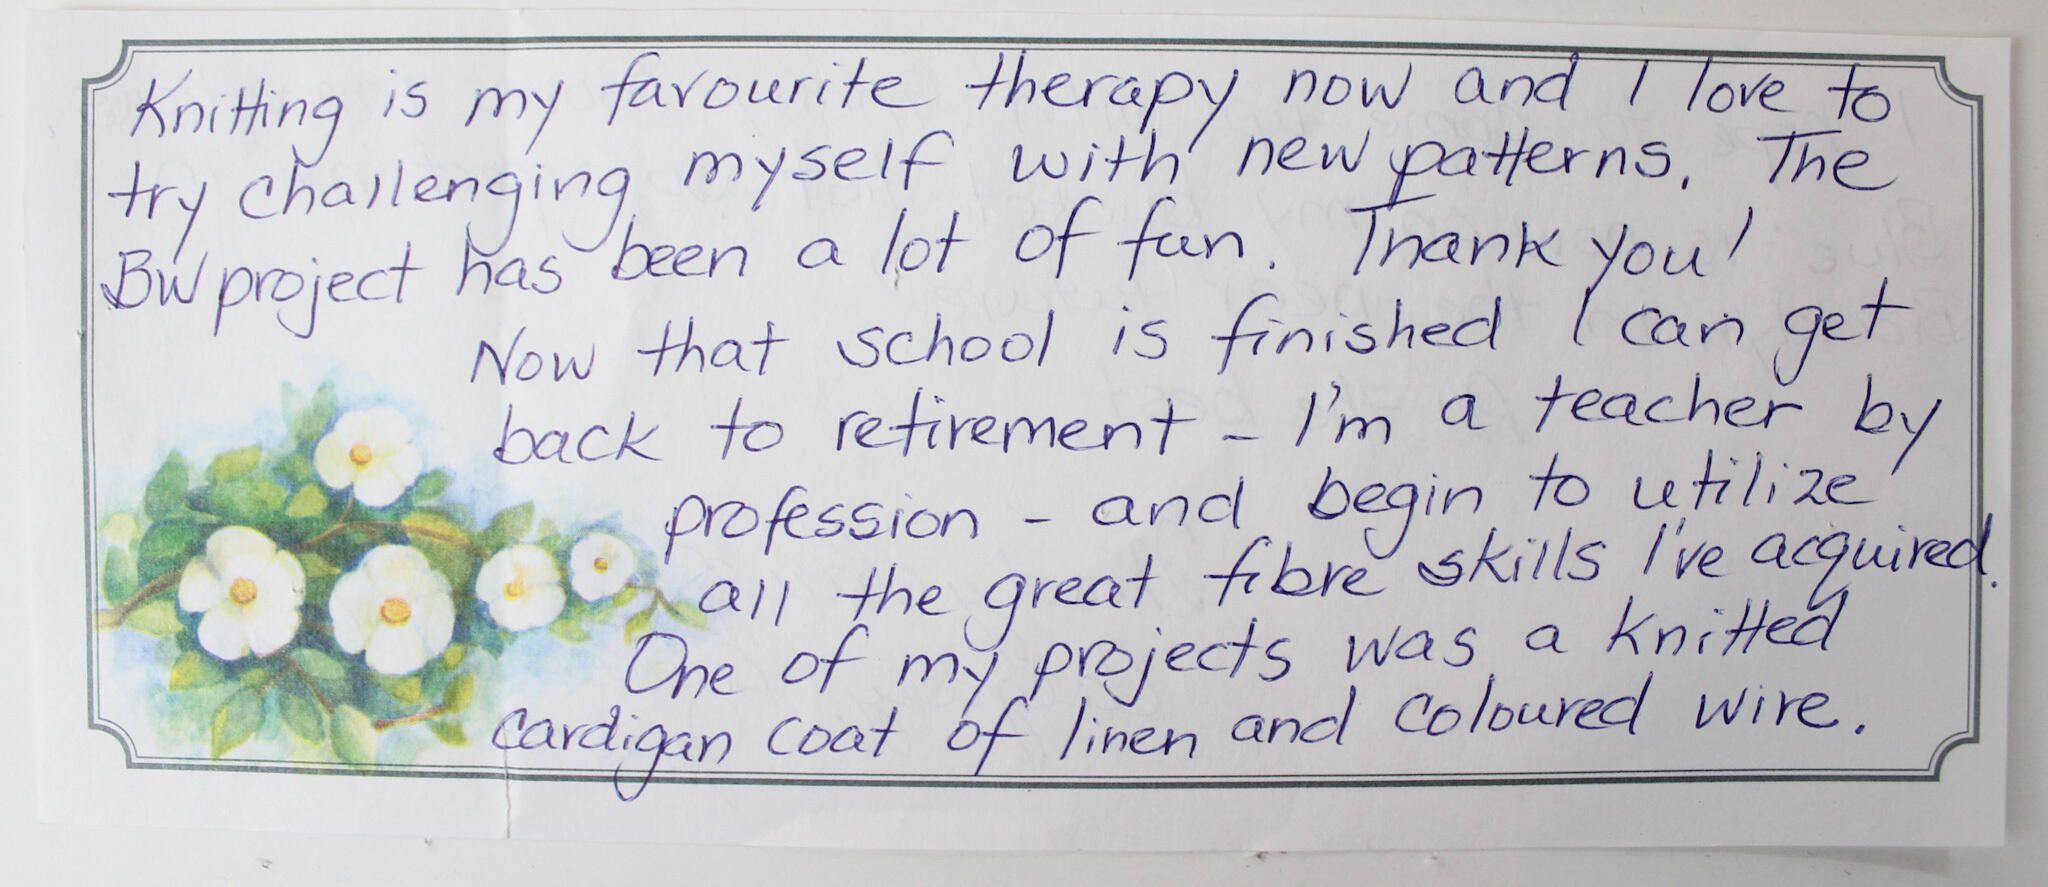 Knitting is my favourite therapy now and I love to
try challenging myself with new patterns. The
BW project has been a lot of fun. Thank you!
Now that school is finished I can get
back to retirement - I'm a teacher by
profession - and begin to utilize
all the great fibre skills I've acquired.
One of my projects was a knitted
cardigan coat of linen and coloured wire.